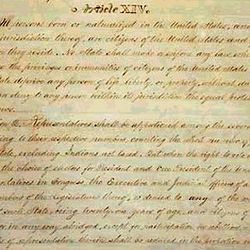 Article XIV.
All persons born or naturalized in the United States, and
jurisdiction thereof, are citizens of the United States and
they reside. No State shall make or enforce any law
the privileges or immunities of citizens of the United States
State deprive any person of life, liberty, or property, without due
deny to any person within its jurisdiction the equal protec
Representatives shall be apportioned among the seve
ing to their respective numbers, counting the whole number of
State, excluding Indians not taxed. But when the right to vote
the choice of electors for President and Vice President of the Un
entatives in Congress, the Executive and Judicial officers of
embers of the Legislature thereof, is denied to any of the
such State, being twenty-one years of age, and citizens of
in any way abridged, except for participation in
of representation therein shall be reduced in the proportion